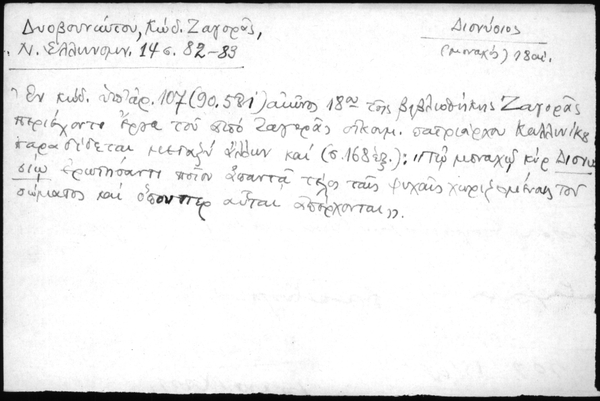 Δυοβουνιώτου, Κώδ. Ζαγορᾶς,
Ν. Ἑλληνομν. 14 σ. 82-83
Διονύσιος
(μοναχός) 18 αἰ.
Ἐν κώδ. ὑπ' ἀρ. 107 (90. 581) αἰῶνος 18ου τῆς βιβλιοθήκης Ζαγορᾶς
περιέχοντι ἔργα τοῦ ἀπὸ Ζαγορᾶς οἰκουμ. πατριάρχου Καλλινίκου
παραδίδεται μεταξὺ ἄλλων καὶ (σ. 168 ἑξ.): "Τῷ μοναχῷ κὺρ Διονυ
σίῳ ἐρωτήσαντι ποῖον ἀπαντᾷ τέλος ταῖς ψυχαῖς χωριζομέναις τοῦ
σώματος καὶ ὅπου περ αὗται ἀπέρχονται".